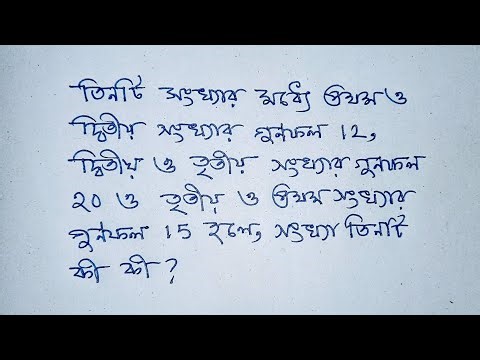 তিনটি সংখ্যার মধ্যে প্রথম ও
দ্বিতীয় সংখ্যার গুনফল 12,
দ্বিতীয় ও তৃতীয় সংখ্যার গুনফল
২০ ও তৃতীয় ও প্রথম সংখ্যার
গুনফল 15 হলে, সংখ্যা তিনটি
কী কী ?